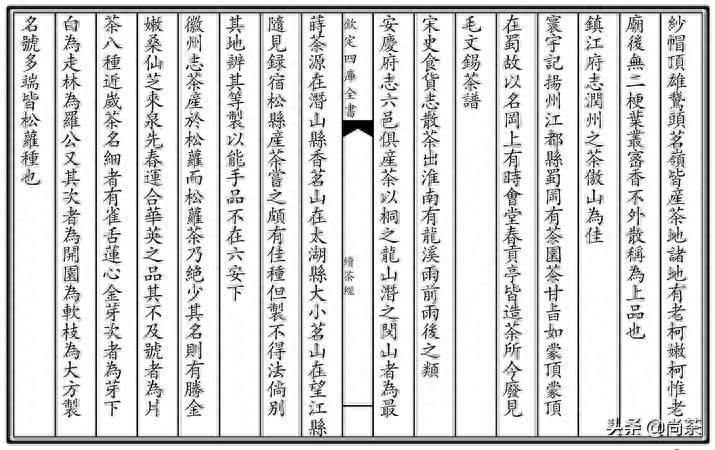 紗帽頂雄鵞頭茗嶺皆産茶地諸地有老柯嫩柯惟老
廟後無二梗葉叢宻香不外散稱為上品也
鎮江府志潤州之茶傲山為佳
寰宇記揚州江都縣蜀岡有茶園茶甘旨如蒙頂蒙頂
在蜀故以名岡上有時會堂春貢亭皆造茶所今廢見
毛文錫茶譜
宋史食貨志散茶出淮南有龍溪雨前雨後之類
安慶府志六邑俱産茶以桐之龍山潛之閔山者為最
欽定四庫全書
續茶經
蒔茶源在潛山縣香茗山在太湖縣大小茗山在望江縣
隨見録宿松縣産茶嘗之頗有佳種但製不得法倘别
其地辨其等製以能手品不在六安下
徽州志茶産於松蘿而松蘿茶乃絶少其名則有勝金
嫩桑仙芝來泉先春運合華英之品其不及號者為片
茶八種近嵗茶名細者有雀舌蓮心金芽次者為芽下
白為走林為羅公又其次者為開園為軟枝為大方製
名號多端皆松蘿種也
头条 @尚茶